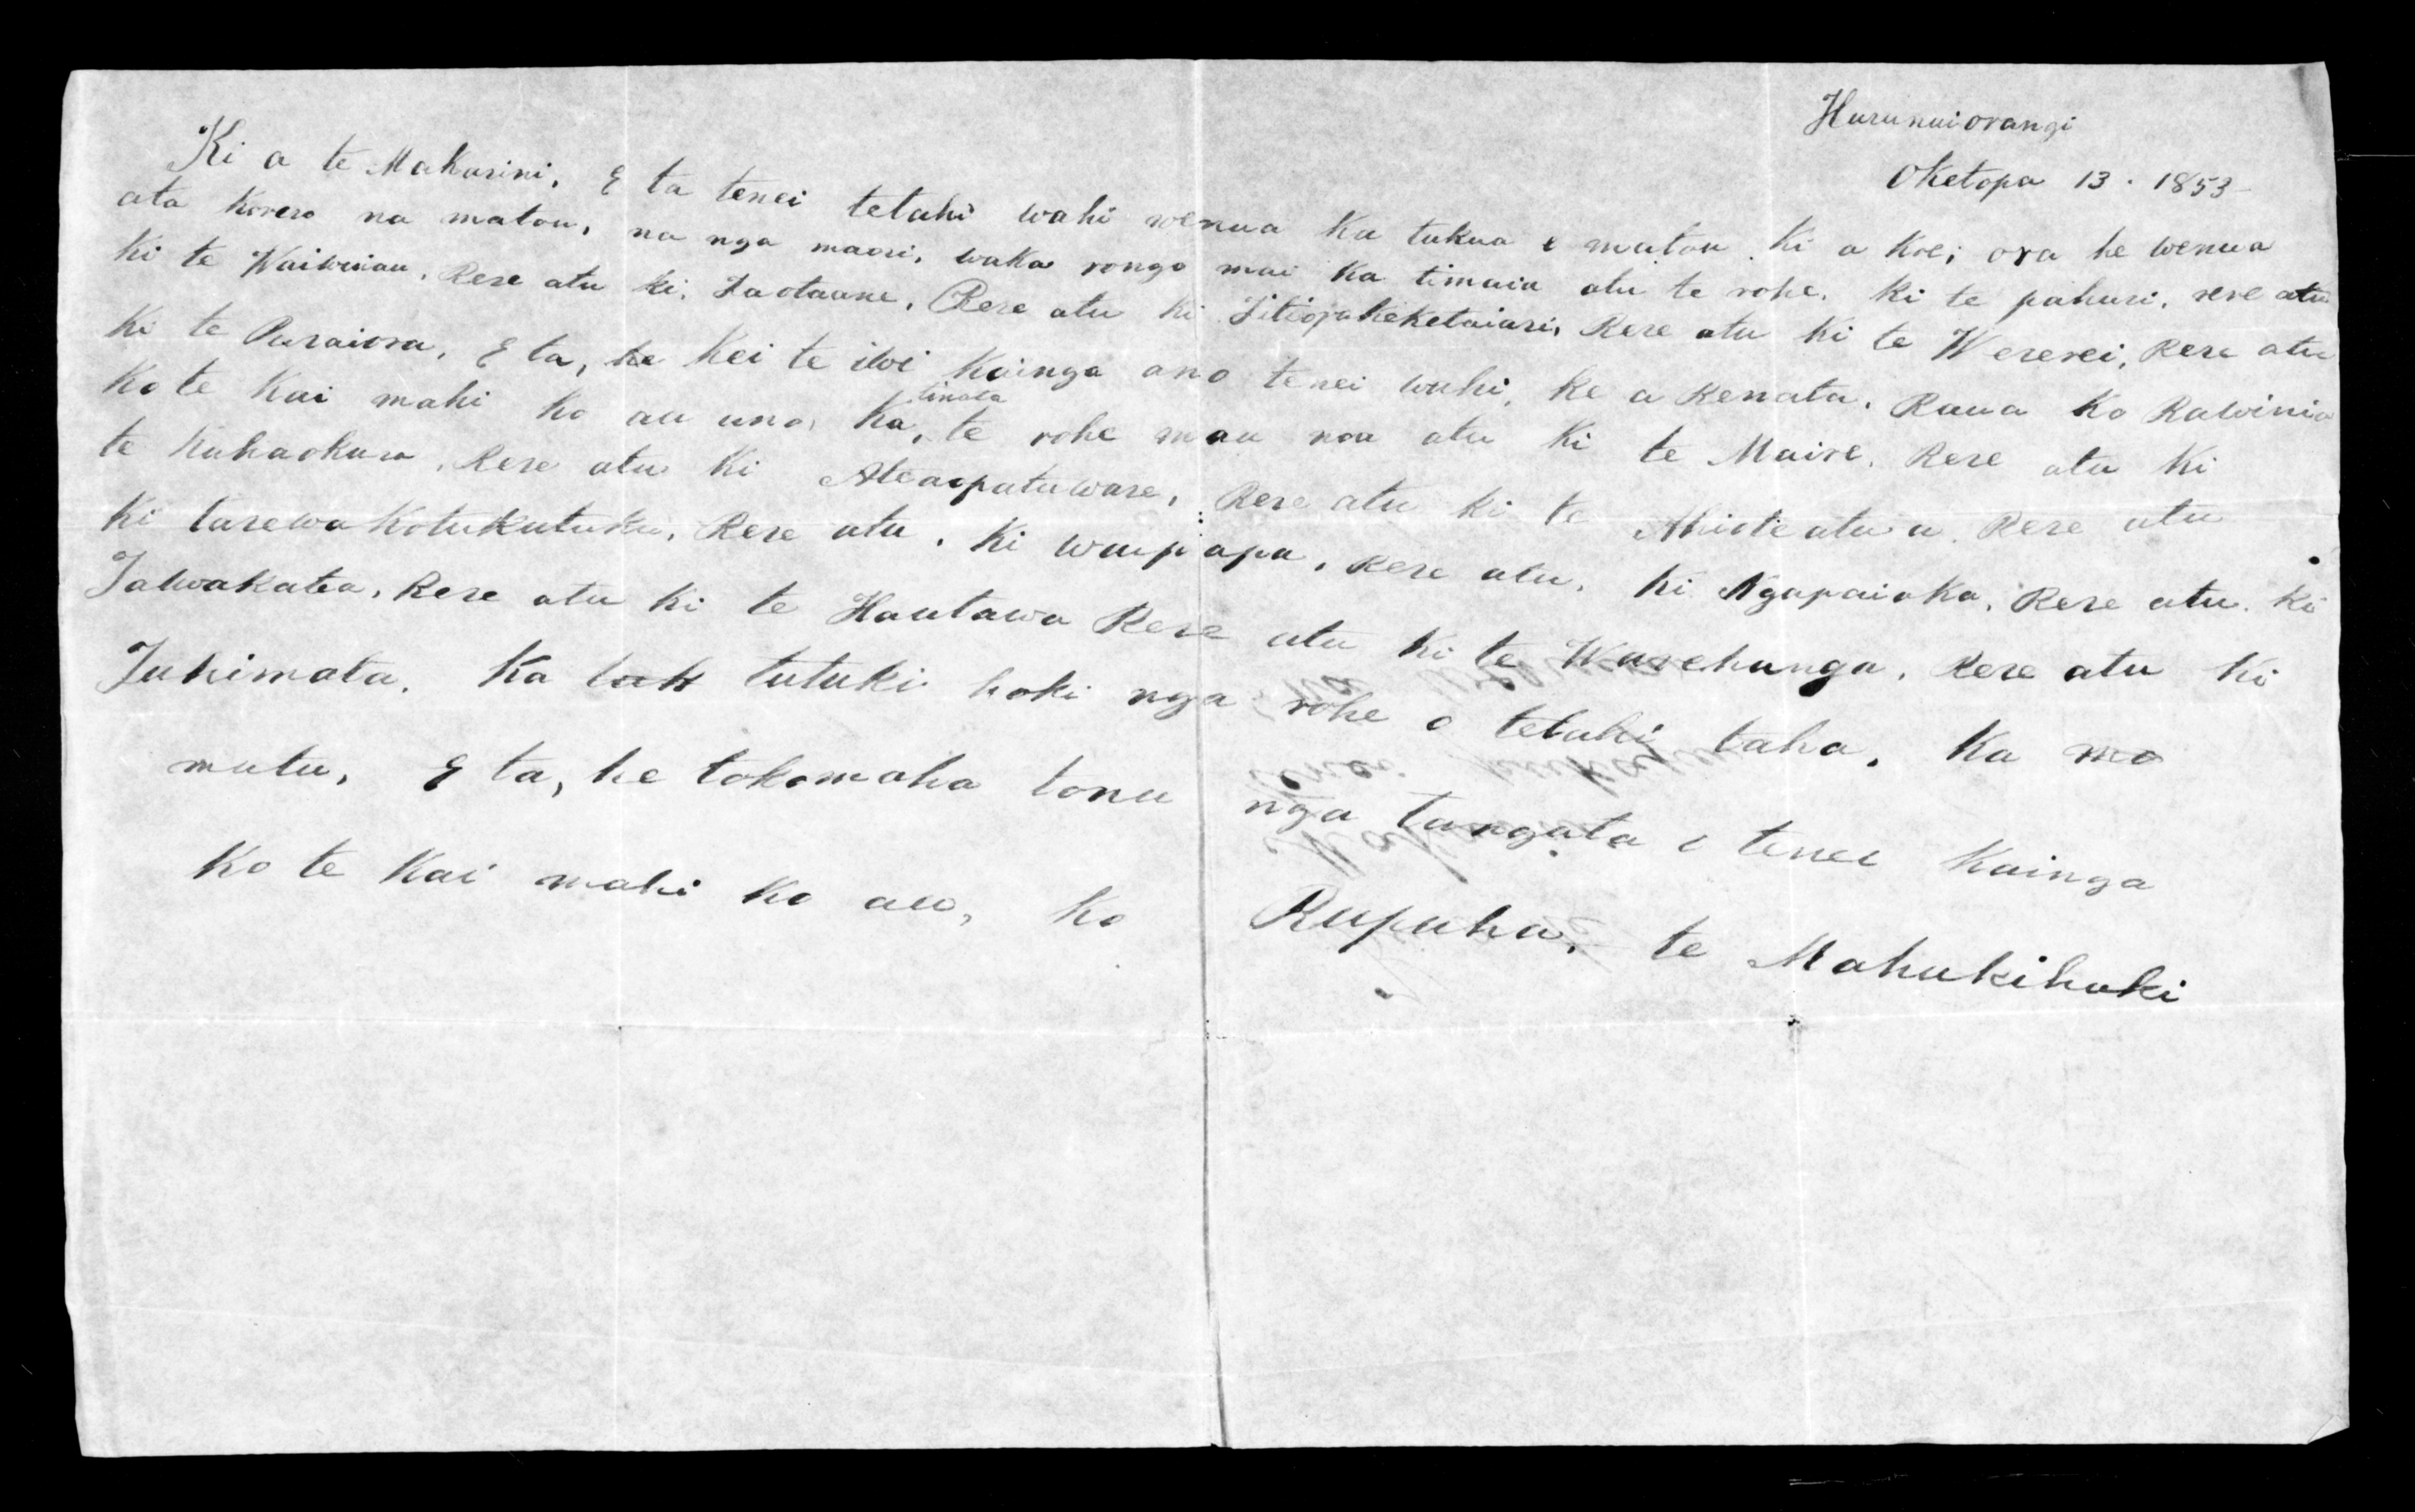 Hurunuiorangi
Oketopa 13 · 1853
Ki a te Makarini, E ta tenei tetahi wahi wenua ka tukua e matou. Ki a koe; ora he wenua
ata korero na matou, na nga maori, waka rongo mai ka timaia atu te rohe, ki te pahuri, rere atu
ki te Waiwiriau, Rere atu ki, Taotaane, Rere atu ki Titiopaheketaiari, Rere atu ki te Wererei, Rere atu
ki te Puraiora, E ta, kei te iwi kainga ano tenei wahi, ke a Renata. Raua ko Rawinia
Ko te kai mahi ko au ano, ka timata te rohe mau noa atu ki te Maire, Rere atu ki
te kuhaokura, Rere atu ki Ateaopatuware, Rere atu ki te Ahioteatua, Rere atu
ki tarewa kotukutuku, Rere atu, ki waipapa, Rere atu, ki Ngapaiaka, Rere atu. ki
Tawakatea, Rere atu ki te Hautawa Rere atu ki te Warehanga, Rere atu ki
Tuhimata. Ka tutuki hoki nga rohe o tetahi taha, Ka mo
mutu, E ta, he tokomaha tonu nga tangata o tenei kainga
Ko te kai mahi ko au, ko Rupuha, te Mahukihuki